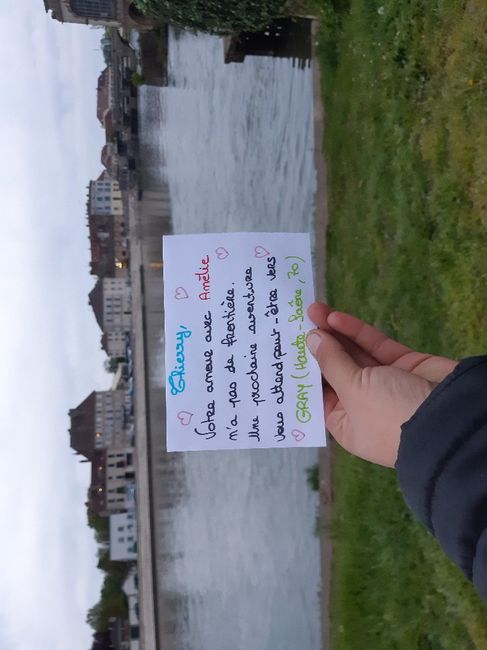 Thierry,
Votre amour avec Amélie
n'a pas de frontière.
Une prochaine aventure
vous attend peut-être vers
GRAY (Haute-Saône, 70)